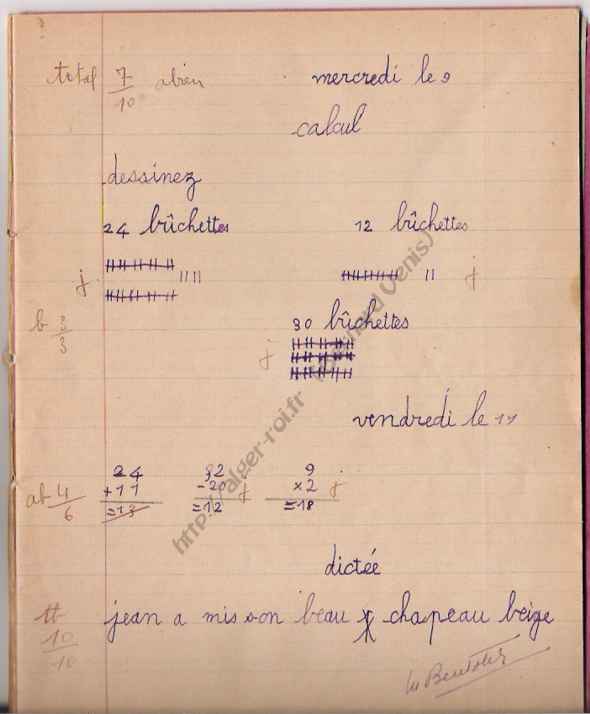 total 7/10 a bien mercredi le 9
calcul
dessinez
24 bûchettes 12 bûchettes
j j
b 3/3 30 bûchettes
j
vendredi le 11
24 32 9
+11 -20 j ×2 j
ab 4/6 =13 =12 =18
dictée
tt 10/10 jean a mis son beau chapeau beige
http://alger-roi.fr Venis)